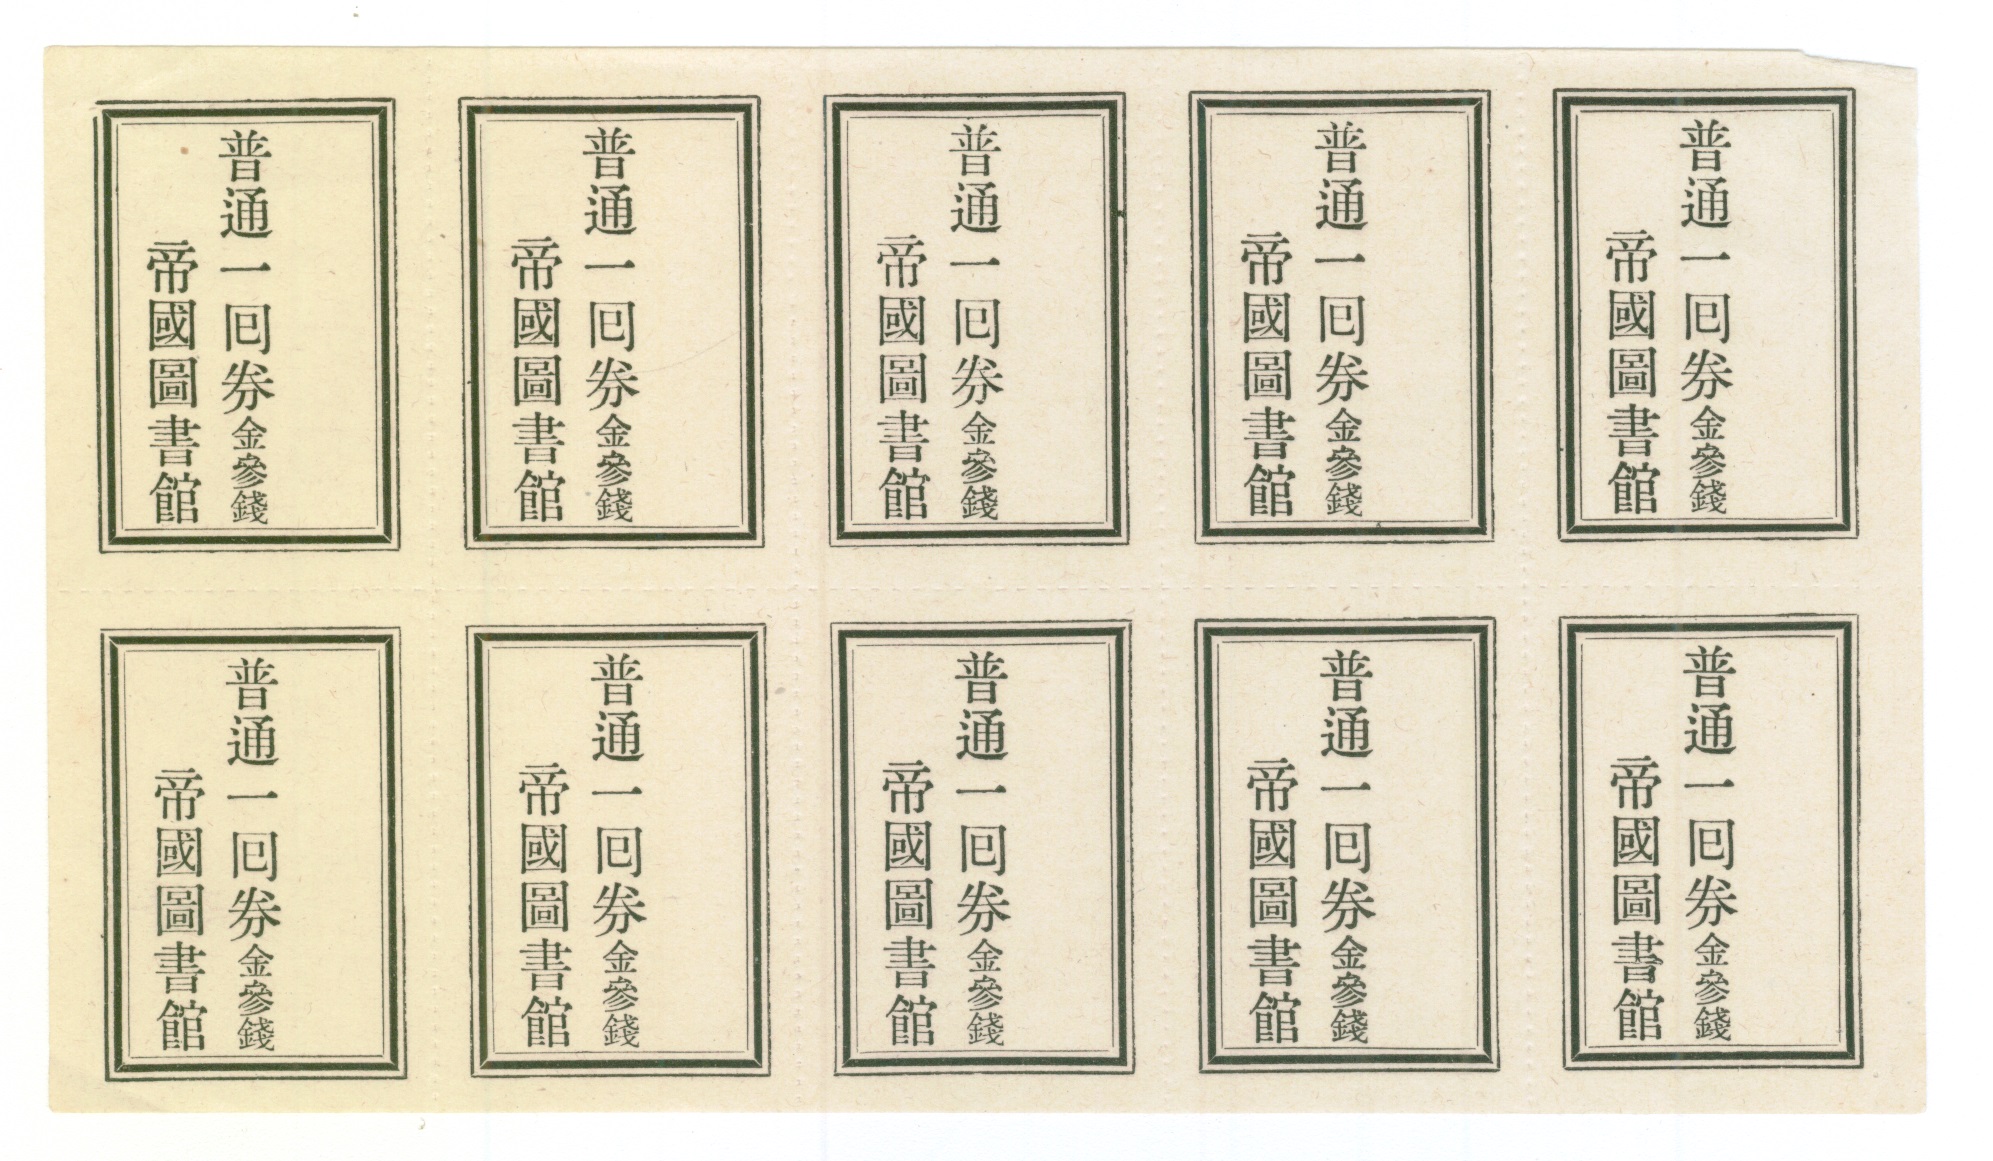 普通一囘券金參錢
帝國圖書館
普通一囘券金參錢
帝國圖書館
普通一囘券金參錢
帝國圖書館
普通一囘券金參錢
帝國圖書館
普通一囘券金參錢
帝國圖書館
普通一囘券金參錢
帝國圖書館
普通一囘券金參錢
帝國圖書館
普通一囘券金參錢
帝國圖書館
普通一囘券金參錢
帝國圖書館
普通一囘券金參錢
帝國圖書館